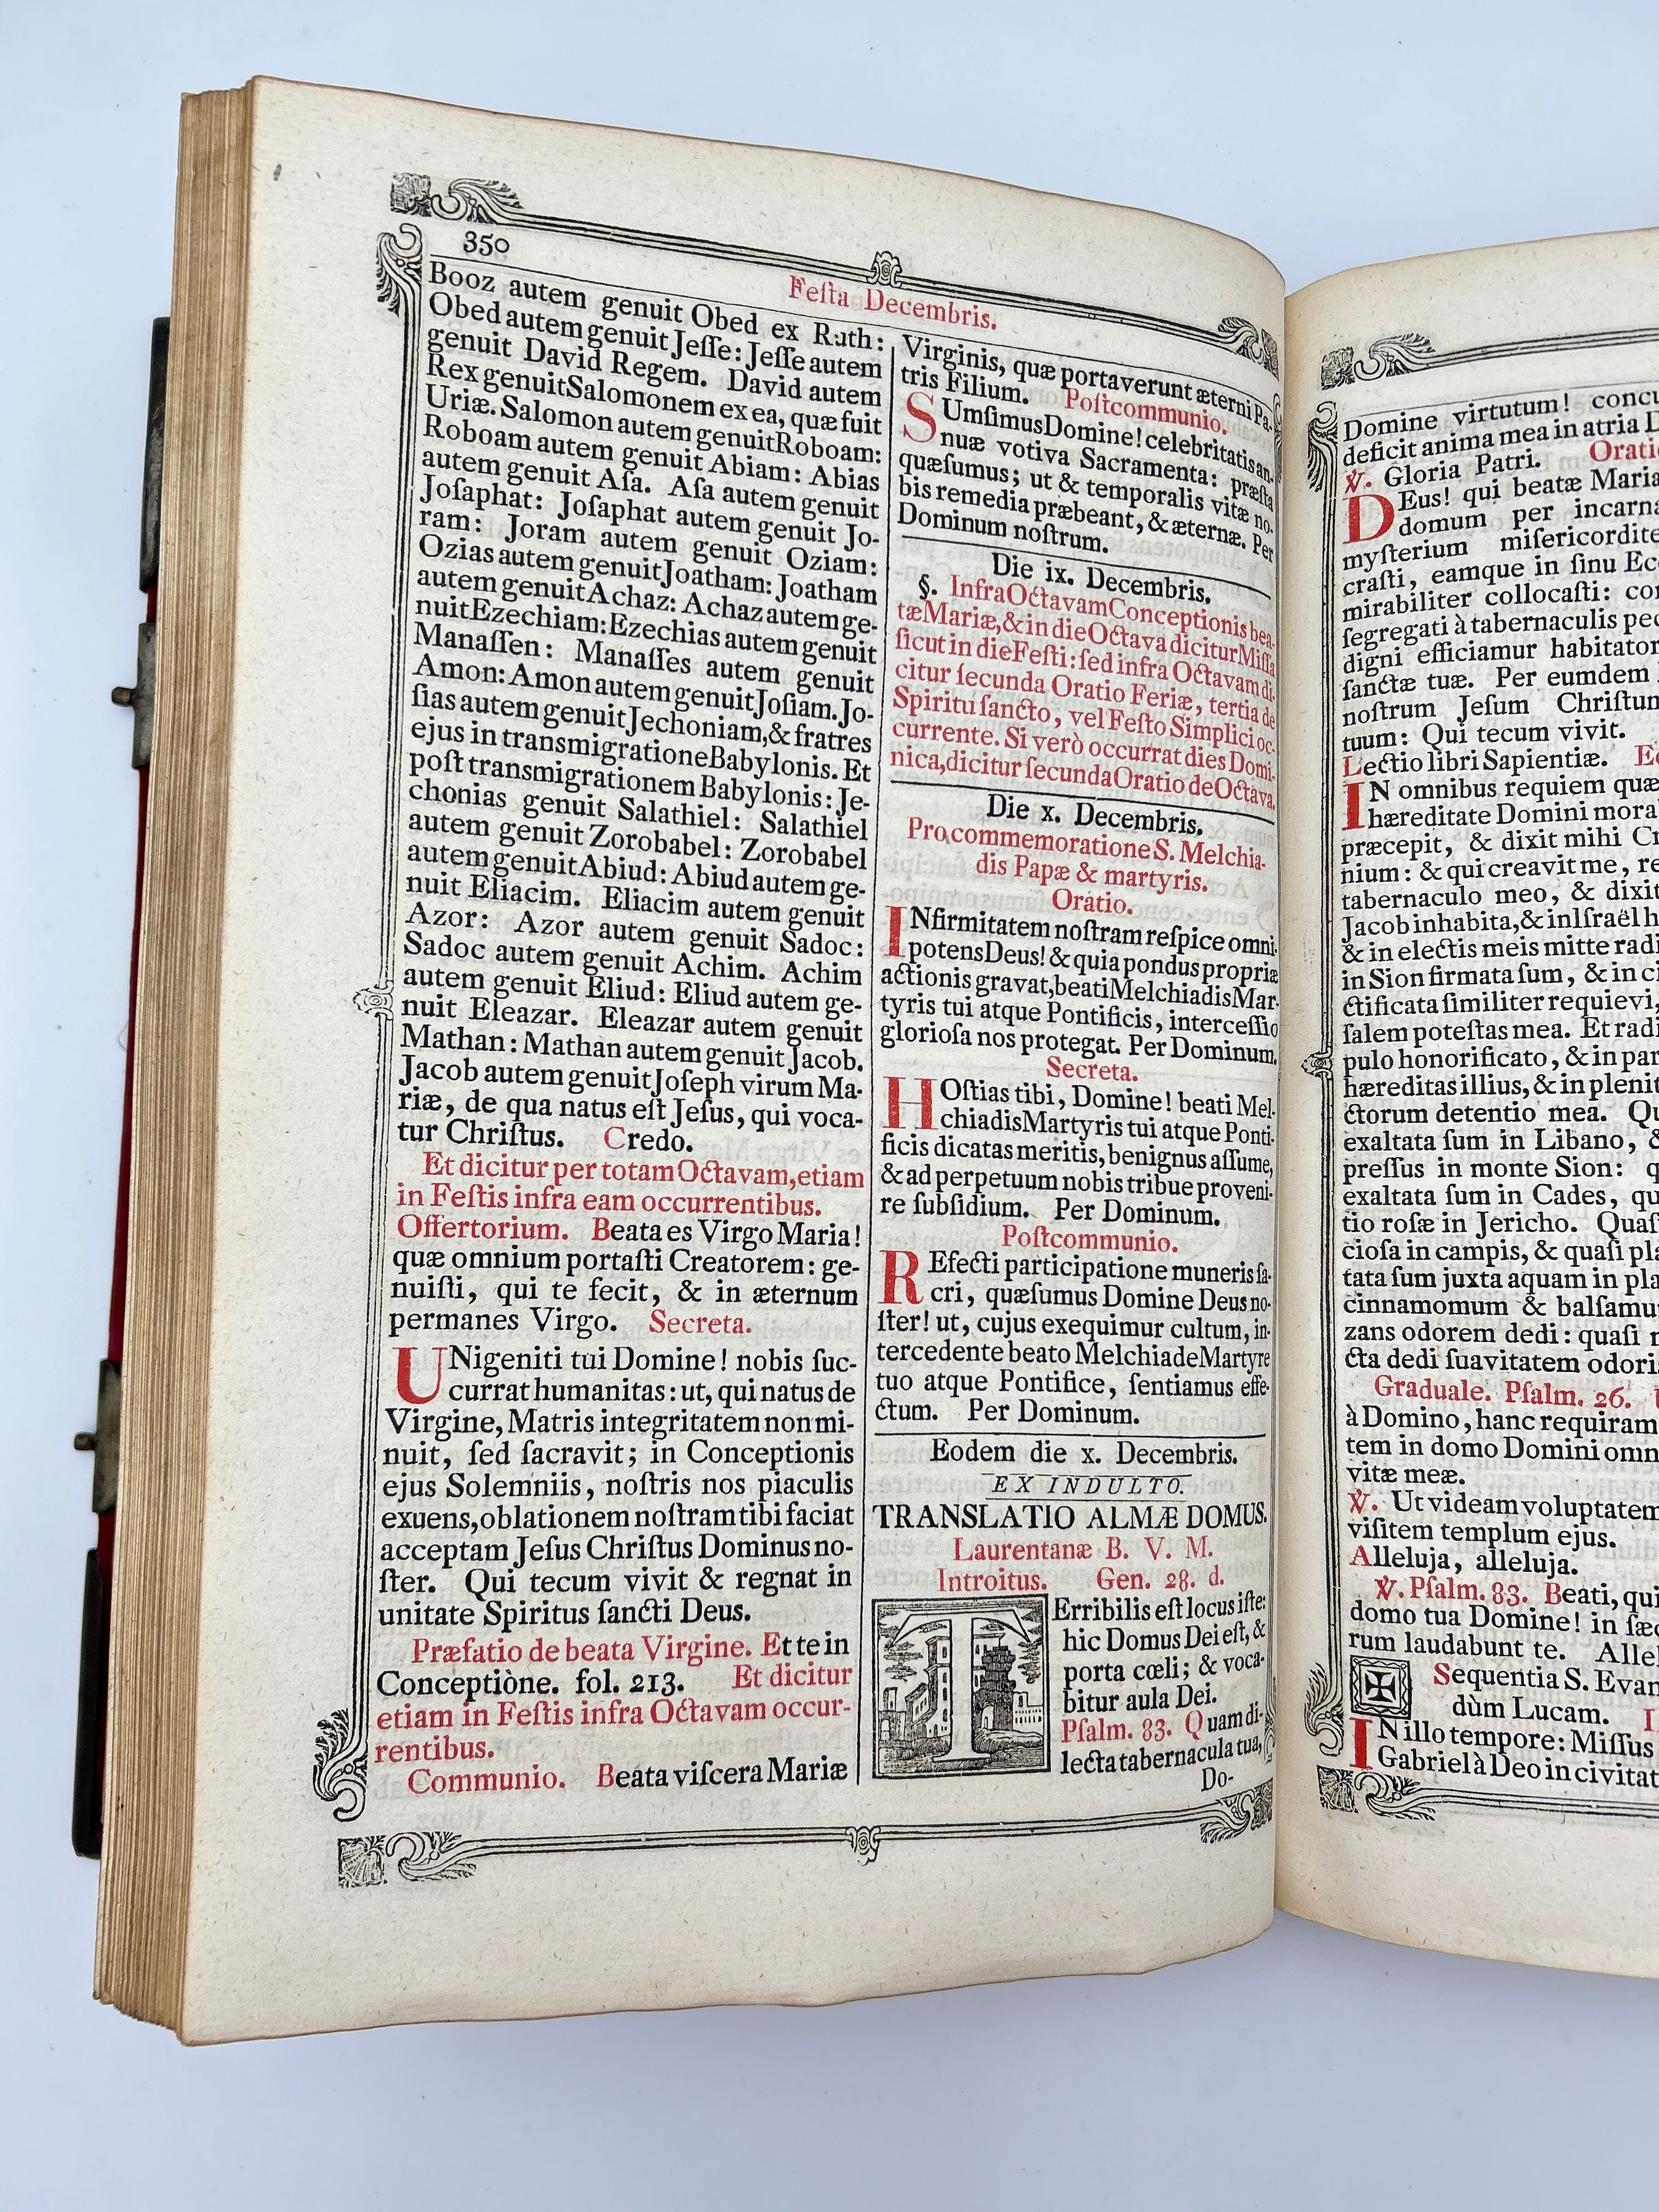 350
Feſta Decembris.
Booz autem genuit Obed ex Ruth:
Obed autem genuit Jeſſe: Jeſſe autem
genuit David Regem. David autem
Rex genuit Salomonem ex ea, quæ fuit
Uriæ. Salomon autem genuit Roboam:
Roboam autem genuit Abiam: Abias
autem genuit Aſa. Aſa autem genuit
Joſaphat: Joſaphat autem genuit Jo-
ram: Joram autem genuit Oziam:
Ozias autem genuit Joatham: Joatham
autem genuit Achaz: Achaz autem ge-
nuit Ezechiam: Ezechias autem genuit
Manaſſen: Manaſſes autem genuit
Amon: Amon autem genuit Joſiam. Jo-
ſias autem genuit Jechoniam, & fratres
ejus in transmigratione Babylonis. Et
poſt transmigrationem Babylonis: Je-
chonias genuit Salathiel: Salathiel
autem genuit Zorobabel: Zorobabel
autem genuit Abiud: Abiud autem ge-
nuit Eliacim. Eliacim autem genuit
Azor: Azor autem genuit Sadoc:
Sadoc autem genuit Achim. Achim
autem genuit Eliud: Eliud autem ge-
nuit Eleazar. Eleazar autem genuit
Mathan: Mathan autem genuit Jacob.
Jacob autem genuit Joſeph virum Ma-
riæ, de qua natus eſt Jeſus, qui voca-
tur Chriſtus. Credo.
Et dicitur per totam Octavam, etiam
in Feſtis infra eam occurrentibus.
Offertorium. Beata es Virgo Maria!
quæ omnium portaſti Creatorem: ge-
nuiſti, qui te fecit, & in æternum
permanes Virgo. Secreta.
UNigeniti tui Domine! nobis ſuc-
currat humanitas: ut, qui natus de
Virgine, Matris integritatem non mi-
nuit, ſed ſacravit; in Conceptionis
ejus Solemniis, noſtris nos piaculis
exuens, oblationem noſtram tibi faciat
acceptam Jeſus Chriſtus Dominus no-
ſter. Qui tecum vivit & regnat in
unitate Spiritus ſancti Deus.
Præfatio de beata Virgine. Et te in
Conceptiòne. fol. 213. Et dicitur
etiam in Feſtis infra Octavam occur-
rentibus.
Communio. Beata viſcera Mariæ
Virginis, quæ portaverunt æterni Pa-
tris Filium. Poſtcommunio.
SUmſimus Domine! celebritatis an-
nuæ votiva Sacramenta: præſta
quæſumus; ut & temporalis vitæ no-
bis remedia præbeant, & æternæ. Per
Dominum noſtrum.
Die ix. Decembris.
§. Infra Octavam Conceptionis bea-
tæ Mariæ, & in die Octava dicitur Miſſa
ſicut in die Feſti: ſed infra Octavam di-
citur ſecunda Oratio Feriæ, tertia de
Spiritu ſancto, vel Feſto Simplici oc-
currente. Si verò occurrat dies Domi-
nica, dicitur ſecunda Oratio de Octava.
Die x. Decembris.
Pro commemoratione S. Melchia-
dis Papæ & martyris.
Oratio.
INfirmitatem noſtram reſpice omni-
potens Deus! & quia pondus propriæ
actionis gravat, beati Melchiadis Mar-
tyris tui atque Pontificis, interceſſio
glorioſa nos protegat. Per Dominum.
Secreta.
HOſtias tibi, Domine! beati Mel-
chiadis Martyris tui atque Ponti-
ficis dicatas meritis, benignus aſſume,
& ad perpetuum nobis tribue proveni-
re ſubſidium. Per Dominum.
Poſtcommunio.
REfecti participatione muneris ſa-
cri, quæſumus Domine Deus no-
ſter! ut, cujus exequimur cultum, in-
tercedente beato Melchiade Martyre
tuo atque Pontifice, ſentiamus effe-
ctum. Per Dominum.
Eodem die x. Decembris.
EX INDULTO.
TRANSLATIO ALMÆ DOMUS.
Laurentanæ B. V. M.
Introitus. Gen. 28. d.
TErribilis eſt locus iſte:
hic Domus Dei eſt, &
porta cœli; & voca-
bitur aula Dei.
Pſalm. 83. Quam di-
lecta tabernacula tua,
Do-
Domine virtutum! concu
deficit anima mea in atria D
℣. Gloria Patri. Orati
DEus! qui beatæ Maria
domum per incarna
myſterium miſericordite
craſti, eamque in ſinu Ec
mirabiliter collocaſti: con
ſegregati à tabernaculis pec
digni efficiamur habitator
ſanctæ tuæ. Per eumdem
noſtrum Jeſum Chriſtum
tuum: Qui tecum vivit.
Lectio libri Sapientiæ. Ec
IN omnibus requiem quæ
hæreditate Domini mora
præcepit, & dixit mihi Cr
nium: & qui creavit me, re
tabernaculo meo, & dixit
Jacob inhabita, & in Iſraël h
& in electis meis mitte radi
in Sion firmata ſum, & in ci
ctificata ſimiliter requievi,
ſalem poteſtas mea. Et radi
pulo honorificato, & in par
hæreditas illius, & in plenit
ctorum detentio mea. Qu
exaltata ſum in Libano, &
preſſus in monte Sion: q
exaltata ſum in Cades, qu
tio roſæ in Jericho. Quaſ
cioſa in campis, & quaſi pla
tata ſum juxta aquam in pla
cinnamomum & balſamu
zans odorem dedi: quaſi
cta dedi ſuavitatem odoris
Graduale. Pſalm. 26.
à Domino, hanc requiram
tem in domo Domini omn
vitæ meæ.
℣. Ut videam voluptatem
viſitem templum ejus.
Alleluja, alleluja.
℣. Pſalm. 83. Beati, qui
domo tua Domine! in ſæc
rum laudabunt te. Alle
✠ Sequentia S. Evan
dùm Lucam. I
IN illo tempore: Miſſus
Gabriel à Deo in civitat